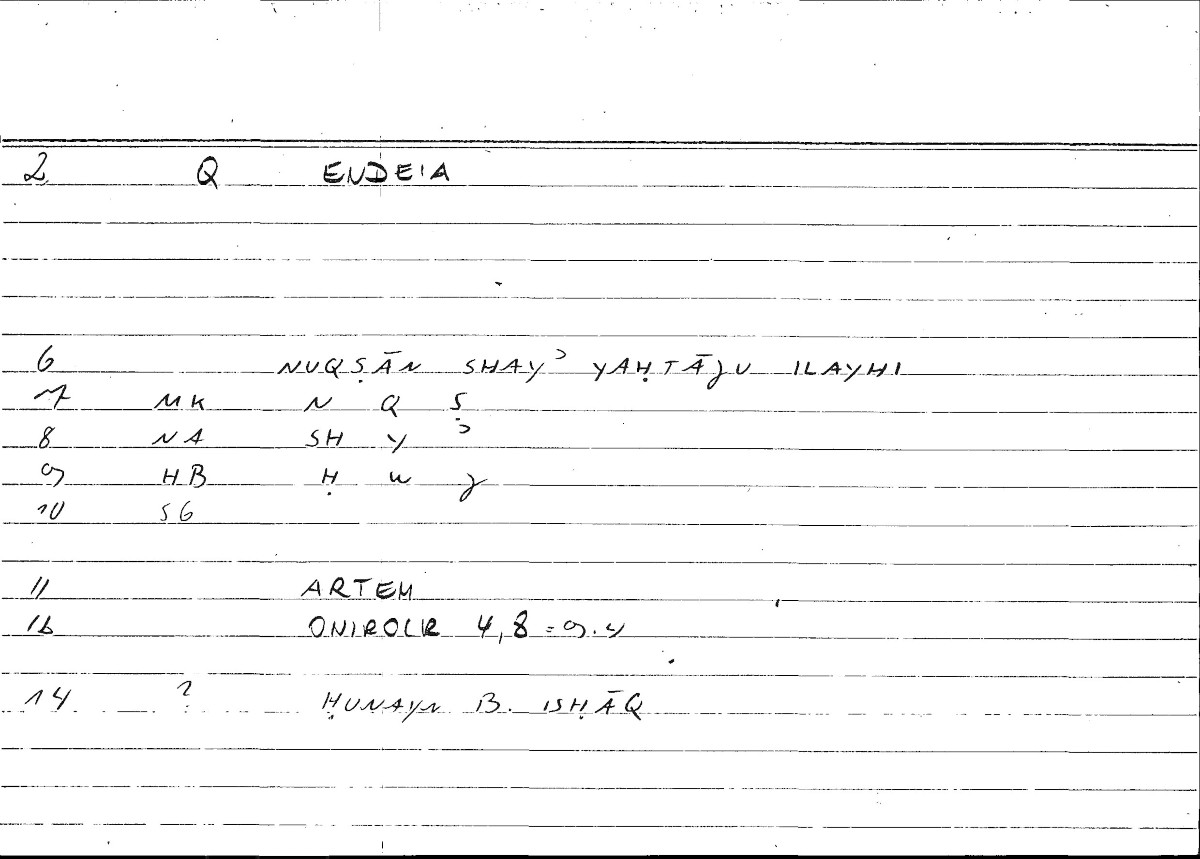 2 Q ENDEIA
6 NUQṢĀN SHAYʾ YAḤTĀJU ILAYHI
7 MK N Q Ṣ
8 NA SH Y ʾ
9 HB Ḥ W J
10 SG
11 ARTEM
12 ONIROCR 4,8 = 9.4
14 ? ḤUNAYN B. ISḤĀQ